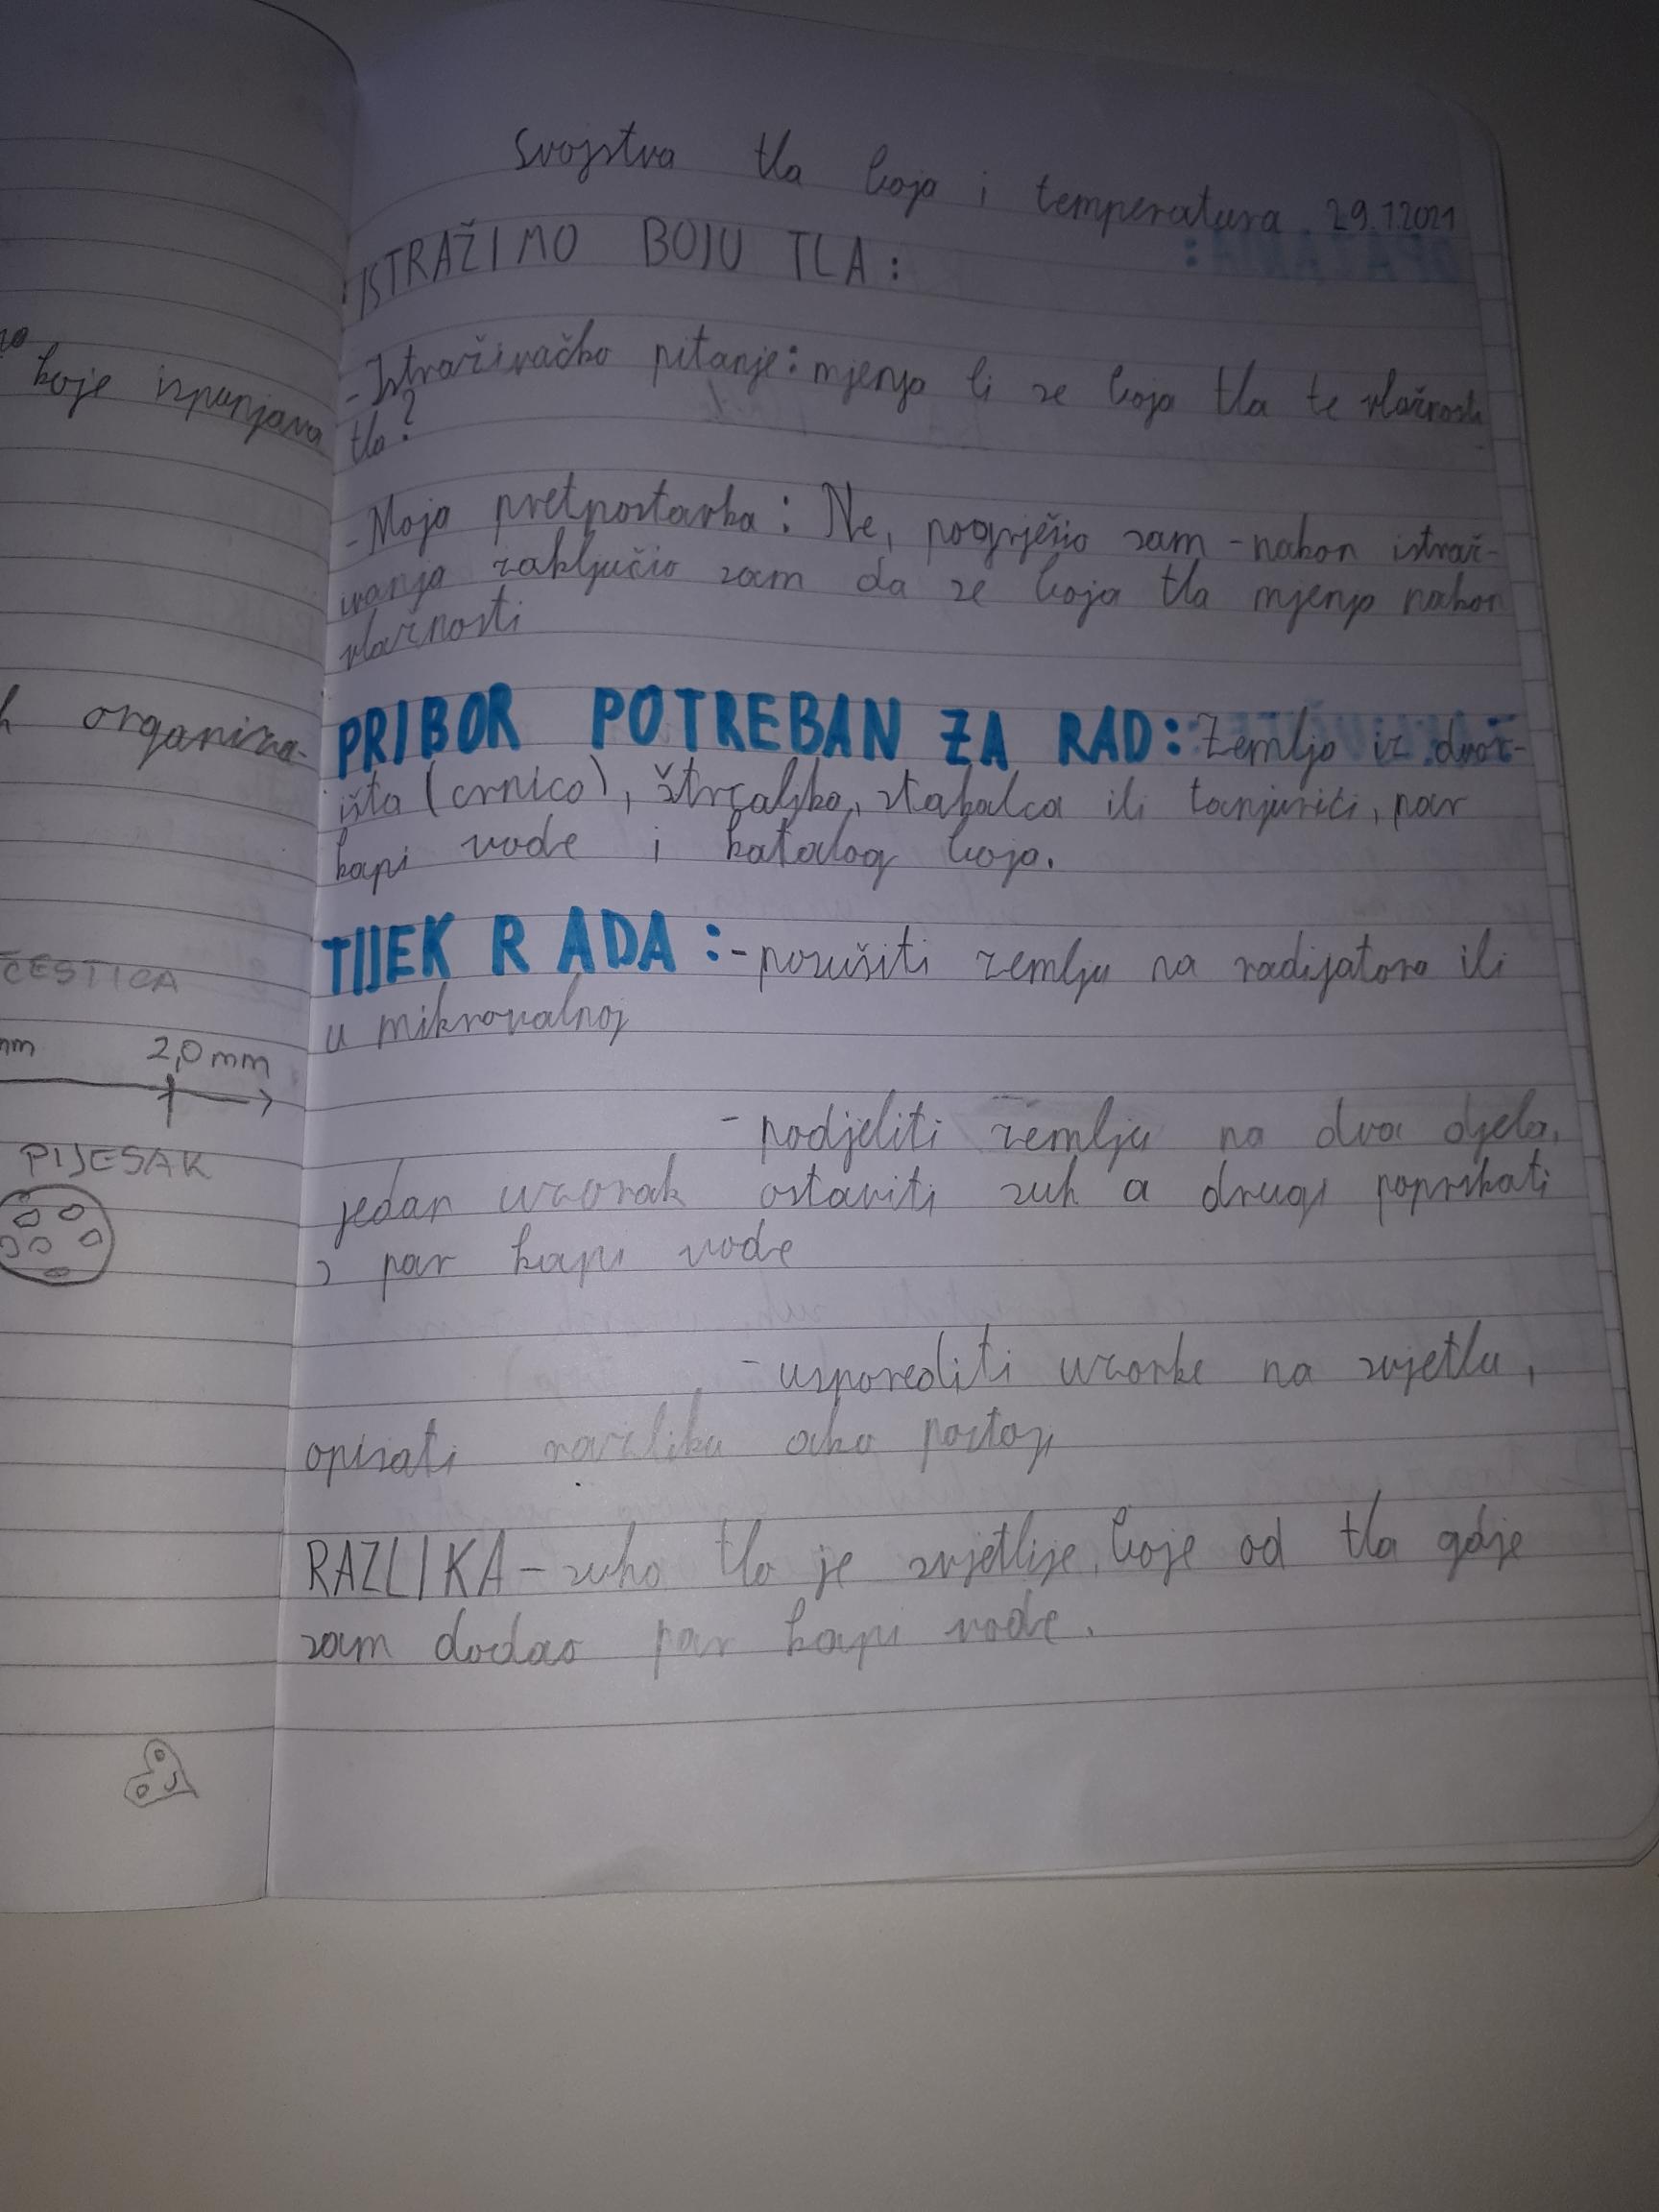 koje ispunjava
organiza-
ČESTICA
mm 2,0 mm
PIJESAK
Svojstva tla boja i temperatura 29.1.2021
ISTRAŽIMO BOJU TLA:
- Istraživačko pitanje: mjenja li se boja tla te vlažnosti
tla?
- Moja pretpostavka: Ne, pogriješio sam - nakon istraž-
ivanja zaključio sam da se boja tla mjenja nakon
vlažnosti
PRIBOR POTREBAN ZA RAD: Zemlja iz dvor-
išta (crnica), štrcaljka, stakalca ili tanjurići, par
kapi vode i katalog boja.
TIJEK RADA: - posušiti zemlju na radijatora ili
u mikrovalnoj
- podjeliti zemlju na dva djela,
jedan uzorak ostaviti suh a drugi poprskati
s par kapi vode
- usporediti uzorke na svjetlu,
opisati razliku ako postoji
RAZLIKA - suho tlo je svjetlije boje od tla gdje
sam dodao par kapi vode.